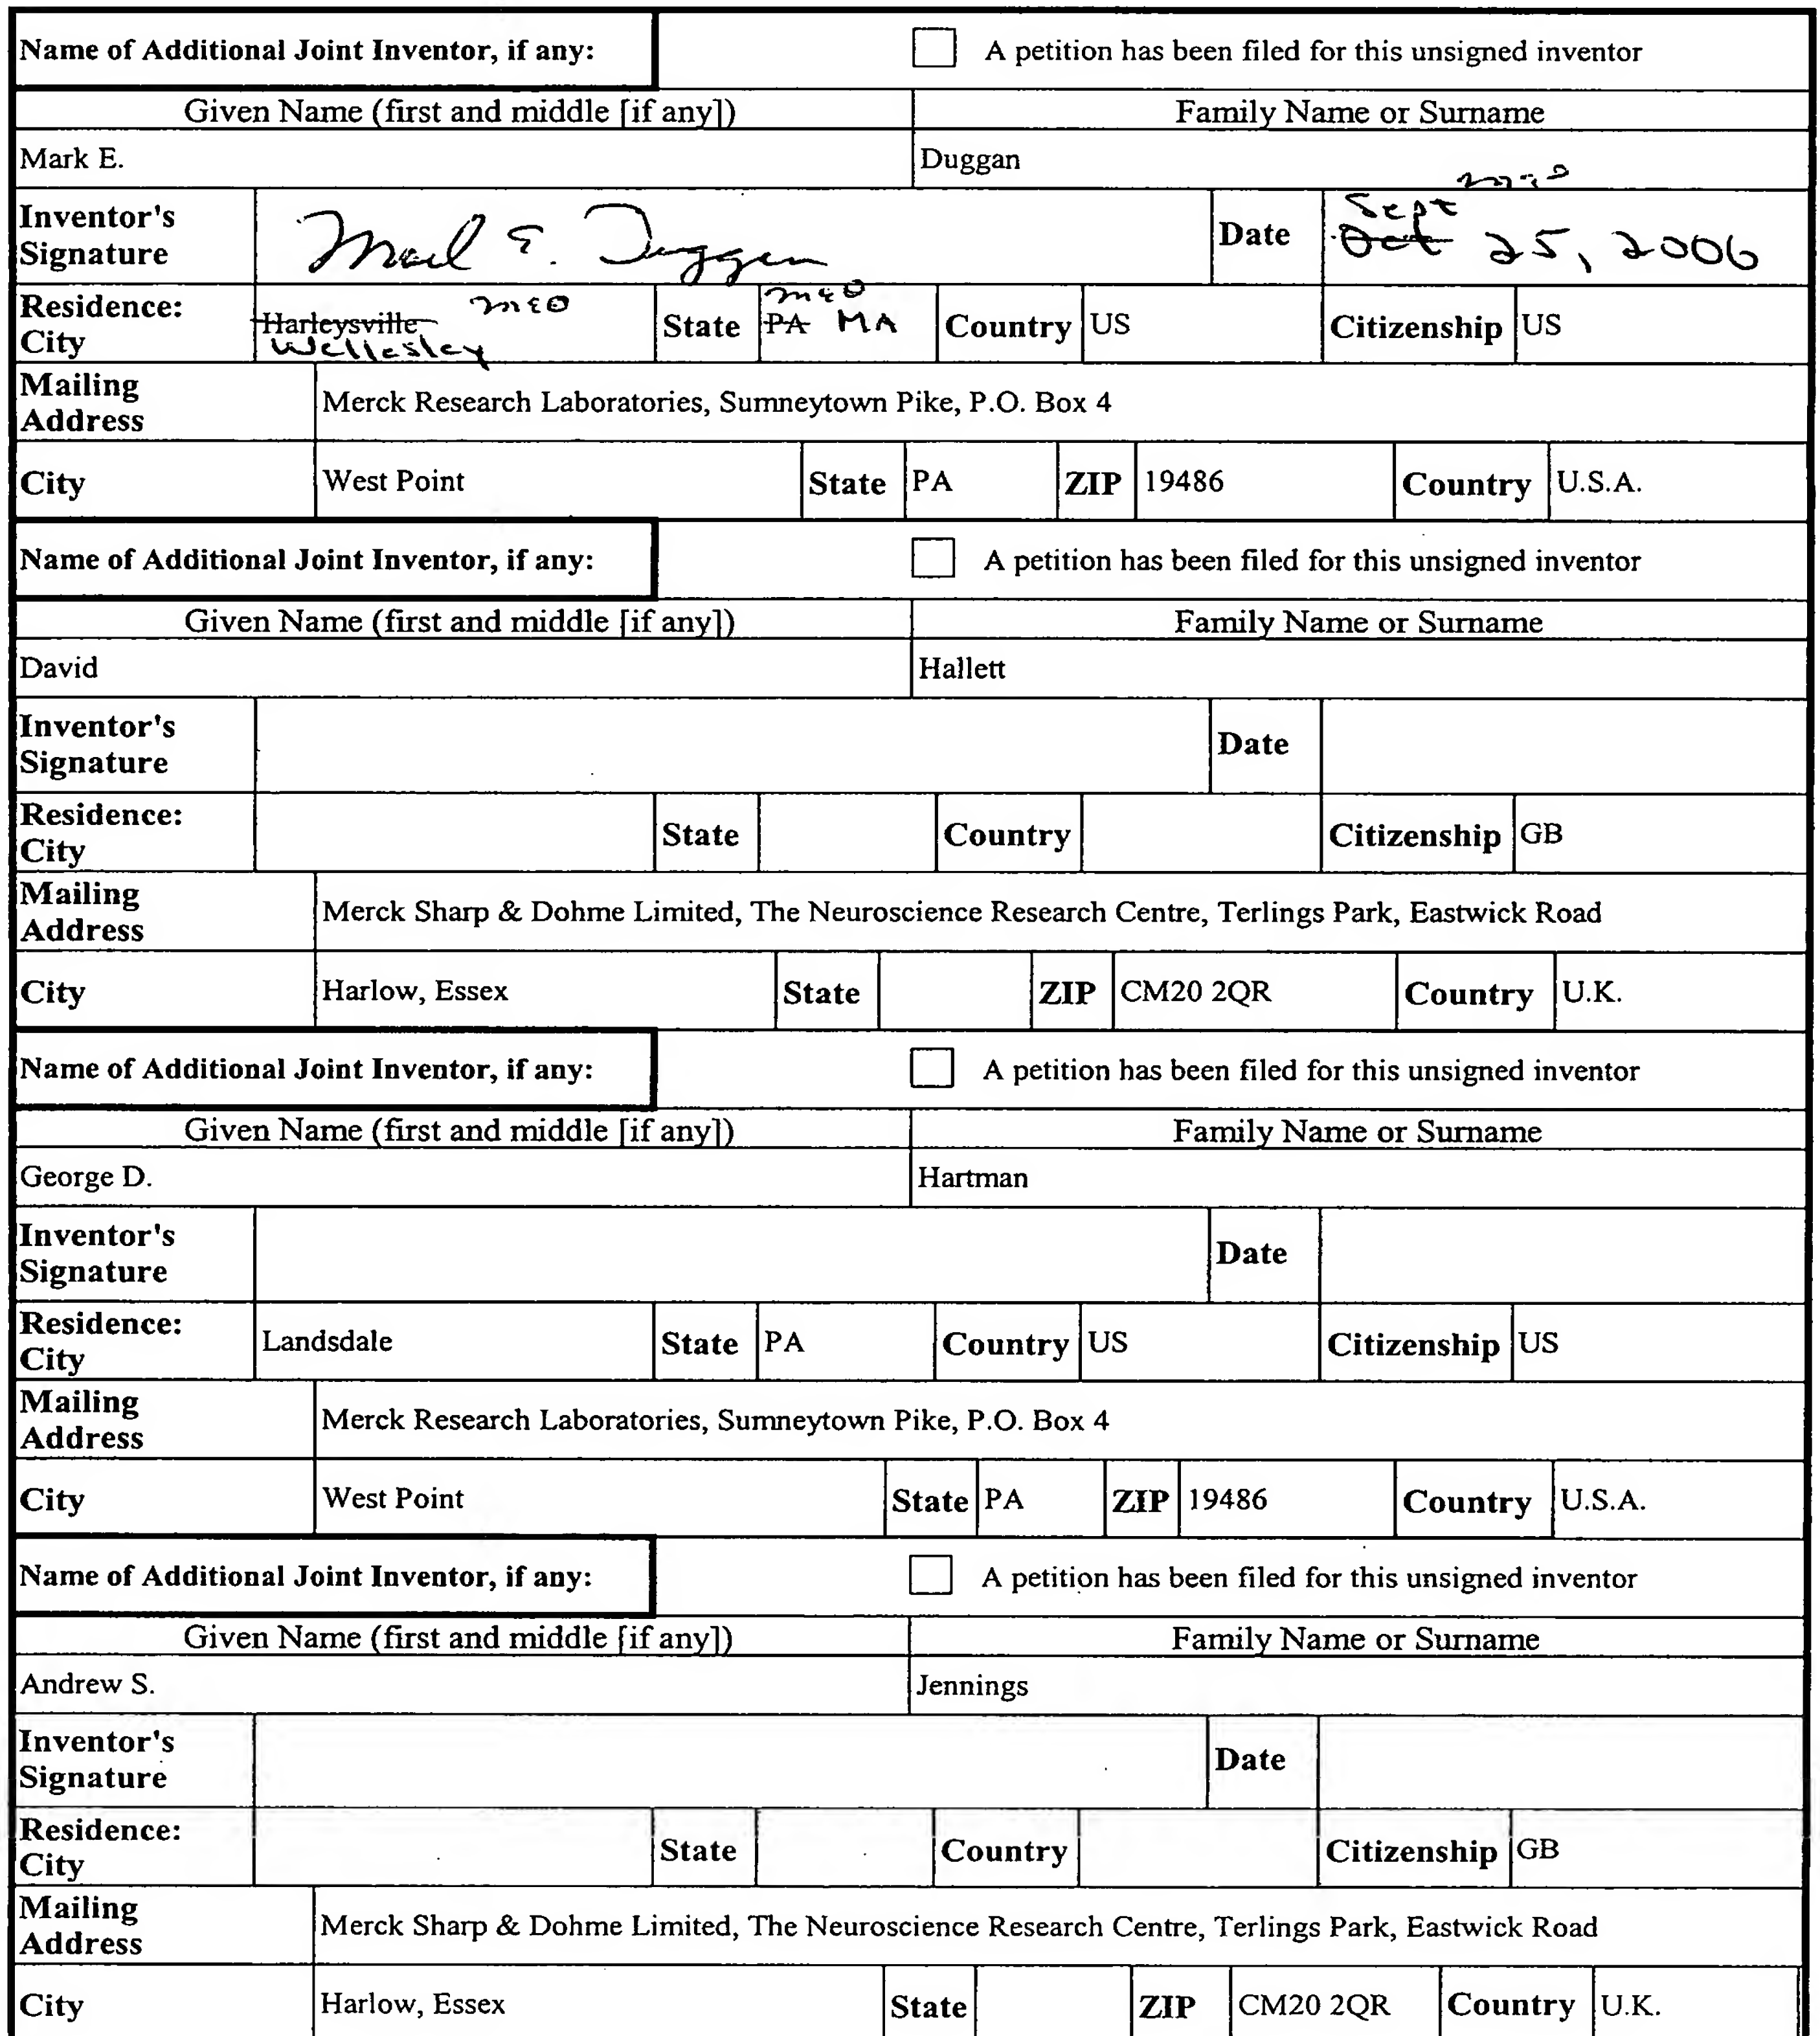 Name of Additional Joint Inventor, if any: A petition has been filed for this unsigned inventor
Given Name (first and middle [if any]) Family Name or Surname
Mark E. Duggan
Inventor's Signature Mark E. Duggan Date MED Sept Oct 25, 2006
Residence: City Harleysville MED Wellesley State MED PA MA Country US Citizenship US
Mailing Address Merck Research Laboratories, Sumneytown Pike, P.O. Box 4
City West Point State PA ZIP 19486 Country U.S.A.
Name of Additional Joint Inventor, if any: A petition has been filed for this unsigned inventor
Given Name (first and middle [if any]) Family Name or Surname
David Hallett
Inventor's Signature Date
Residence: City State Country Citizenship GB
Mailing Address Merck Sharp & Dohme Limited, The Neuroscience Research Centre, Terlings Park, Eastwick Road
City Harlow, Essex State ZIP CM20 2QR Country U.K.
Name of Additional Joint Inventor, if any: A petition has been filed for this unsigned inventor
Given Name (first and middle [if any]) Family Name or Surname
George D. Hartman
Inventor's Signature Date
Residence: City Landsdale State PA Country US Citizenship US
Mailing Address Merck Research Laboratories, Sumneytown Pike, P.O. Box 4
City West Point State PA ZIP 19486 Country U.S.A.
Name of Additional Joint Inventor, if any: A petition has been filed for this unsigned inventor
Given Name (first and middle [if any]) Family Name or Surname
Andrew S. Jennings
Inventor's Signature Date
Residence: City State Country Citizenship GB
Mailing Address Merck Sharp & Dohme Limited, The Neuroscience Research Centre, Terlings Park, Eastwick Road
City Harlow, Essex State ZIP CM20 2QR Country U.K.